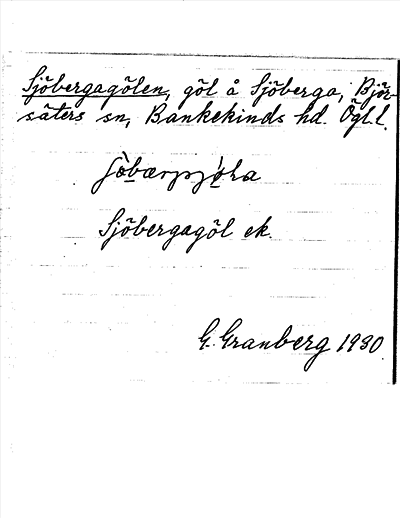 Sjöbergagölen, göl å Sjöberga, Björ-
säters sn, Bankekinds hd. Ögl.l.
Sjöbergagöl ek.
G. Granberg 1930.